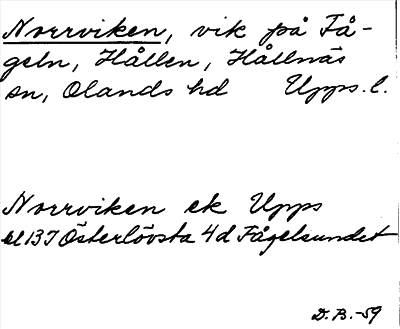 Norrviken, vik på Få-
geln, Hållen, Hållnäs
sn, Olands hd Upps. l.
Norrviken ek Upps
bl 137 Österlövsta 4d Fågelsundet
D. B. -59